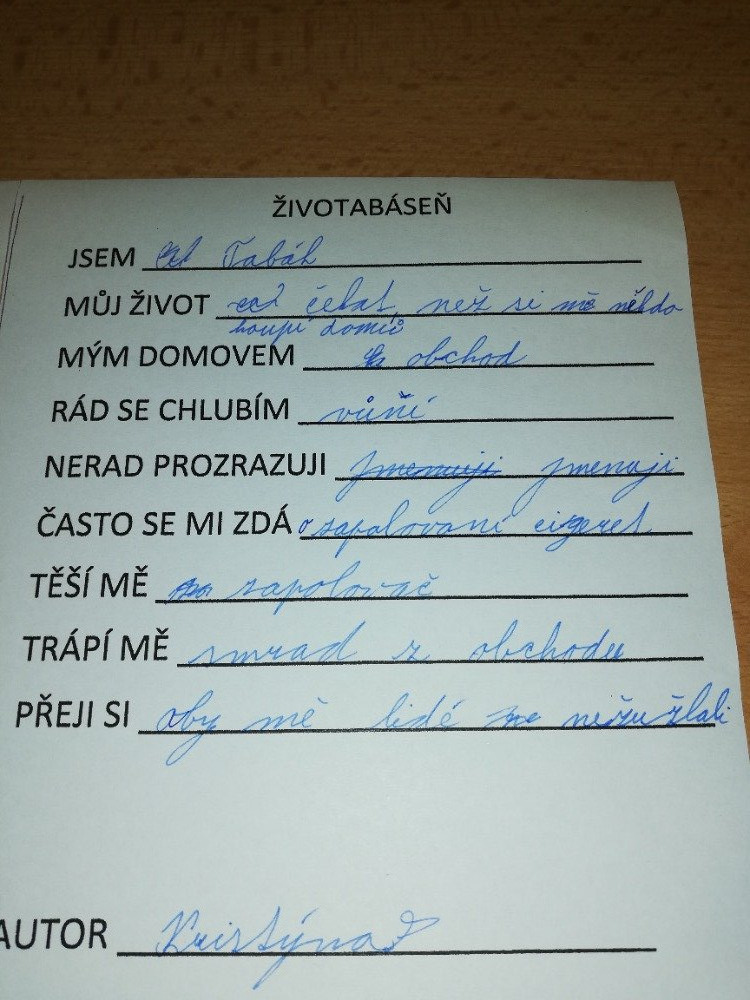 ŽIVOTABÁSEŇ
JSEM Tabák
MŮJ ŽIVOT čekat, než si mě někdo
koupí domů
MÝM DOMOVEM obchod
RÁD SE CHLUBÍM vůňí
NERAD PROZRAZUJI Jmenuji jmenuji
ČASTO SE MI ZDÁ o zapalovaní cigaret
TĚŠÍ MĚ zapolovač
TRÁPÍ MĚ smrad z obchodu
PŘEJI SI aby mě lidé
AUTOR Kristýna